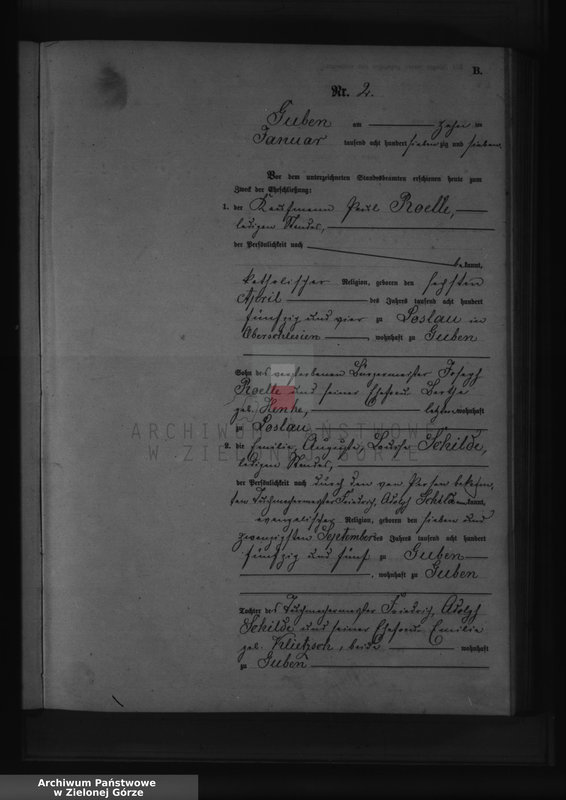 B.
Nr. 2.
Guben am zehn ten
Januar tausend acht hundert sieben zig und sieben
Vor dem unterzeichneten Standesbeamten erschienen heute zum
Zweck der Eheschließung:
1. der Kaufmann Paul Roelle,
ledigen Standes,
der Persönlichkeit nach
bekannt,
katholischer Religion, geboren den sechsten
April des Jahres tausend acht hundert
fünfzig und vier zu Loslau in
Oberschlesien, wohnhaft zu Guben
Sohn des verstorbenen Bürgermeister Joseph
Roelle und seiner Ehefrau Bertha
geb. Henke, letzere wohnhaft
zu Loslau
ARCHIWUM PAŃSTWOWE
W ZIELONEJ GÓRZE
2. die Emilie, Auguste, Louise Schilde,
ledigen Standes,
der Persönlichkeit nach durch den von Person bekann
ten Tuchmachermeister Friedrich, Adolph Schilde kannt,
evangelischer Religion, geboren den sieben und
zwanzigsten September des Jahres tausend acht hundert
fünfzig und fünf zu Guben
, wohnhaft zu Guben
Tochter des Tuchmachermeister Friedrich, Adolph
Schilde und seiner Ehefrau Emilie
geb. Klietzsch, beide wohnhaft
zu Guben
Archiwum Państwowe
w Zielonej Górze